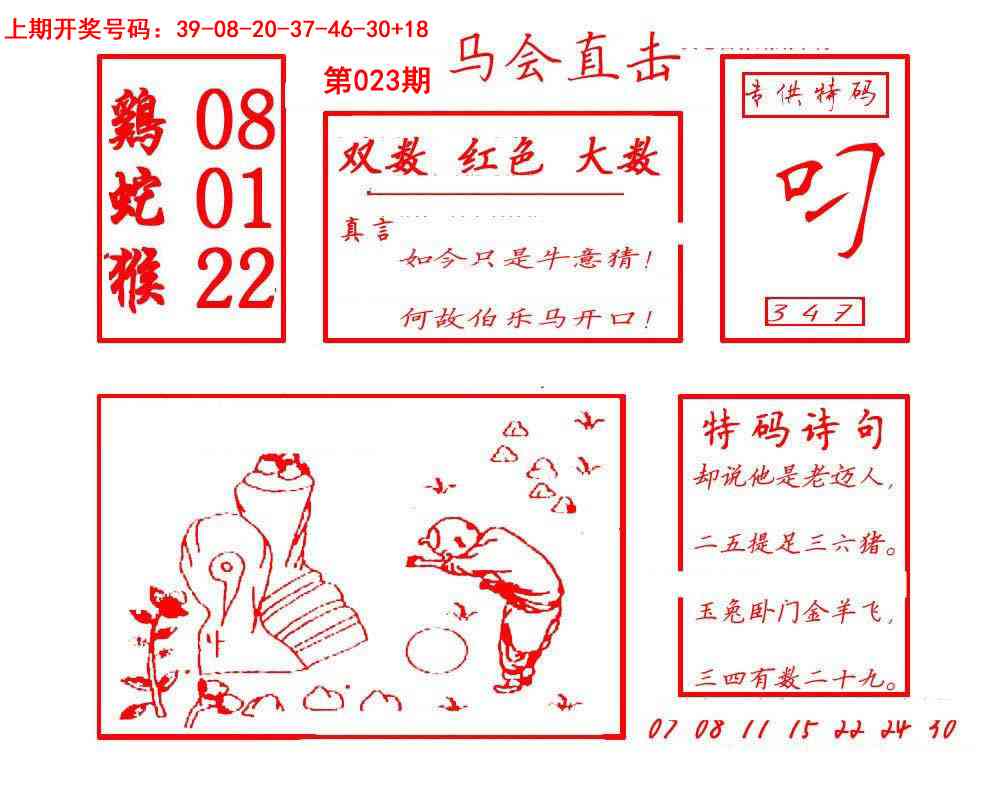 上期开奖号码：39-08-20-37-46-30+18
第023期
马会直击
鷄 08
蛇 01
猴 22
双数 红色 大数
真言
如今只是牛意猜！
何故伯乐马开口！
专供特码
叼
347
特码诗句
却说他是老迈人，
二五提足三六猪。
玉兔卧门金羊飞，
三四有数二十九。
07 08 11 15 22 24 30